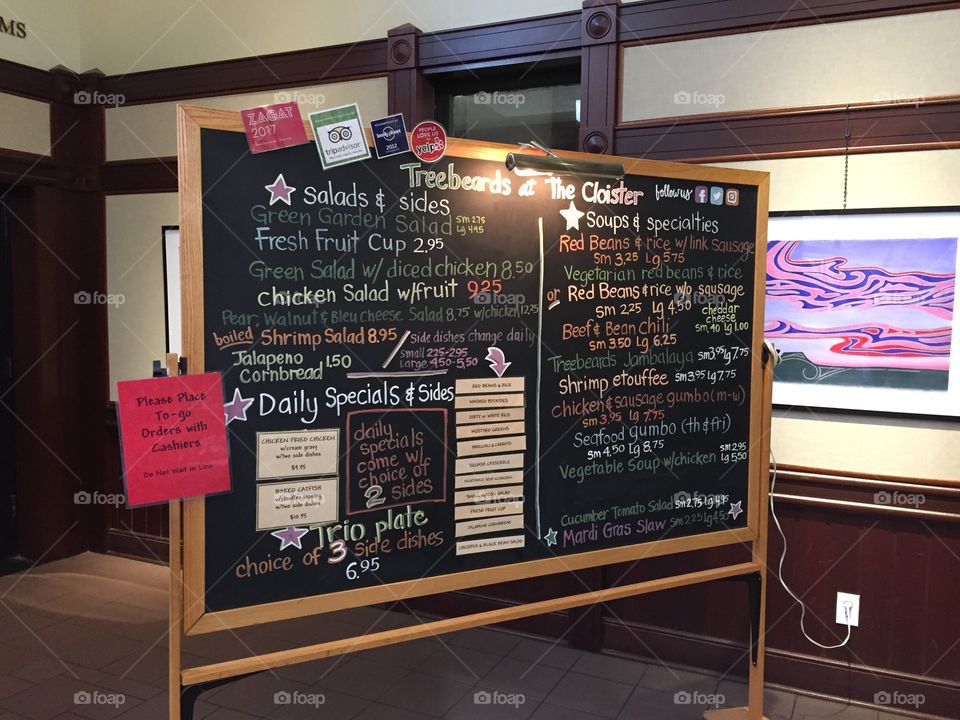 MS
ZAGAT
2017
tripadvisor
lonely planet
2012
PEOPLE
LOVE US
yelp
Treebeards at The Cloister
follow us
Salads & sides
Green Garden Salad sm 2.75
Lg 4.95
Fresh Fruit Cup 2.95
Green Salad w/ diced chicken 8.50
Chicken Salad w/fruit 9.25
Pear, Walnut & Bleu Cheese Salad 8.75 w/chicken 12.25
boiled Shrimp Salad 8.95
Jalapeno
Cornbread 1.50
side dishes change daily
small 2.25-2.95
Large 4.50-5.50
Daily Specials & Sides
CHICKEN FRIED CHICKEN
w/cream gravy
w/two side dishes
$9.95
BAKED CATFISH
w/two side dishes
$10.95
daily
specials
come w/
choice of
2 sides
RED BEANS & RICE
MASHED POTATOES
DIRTY OR WHITE RICE
MUSTARD GREENS
BROCCOLI & CARROTS
SQUASH CASSEROLE
FRESH FRUIT CUP
JALAPENO CORNBREAD
CHICKPEA & BLACK BEAN SALAD
Trio plate
choice of 3 side dishes
6.95
Soups & specialties
Red Beans & rice w/ link sausage
sm 3.25 Lg 5.75
Vegetarian red beans & rice
or Red Beans & rice w/o sausage
sm 2.25 Lg 4.50
cheddar
cheese
sm .40 Lg 1.00
Beef & Bean chili
sm 3.50 Lg 6.25
Treebeards Jambalaya sm 3.95 Lg 7.75
Shrimp etouffee sm 3.95 Lg 7.75
chicken & sausage gumbo (m-w)
sm 3.95 Lg 7.75
Seafood gumbo (th & fri)
sm 4.50 Lg 8.75
Vegetable Soup w/chicken sm 2.95
Lg 5.50
Cucumber Tomato Salad sm 2.75 Lg 4.95
Mardi Gras Slaw sm 2.25 Lg 4.50
Please Place
To-go
Orders with
Cashiers
Do Not Wait in Line
foap